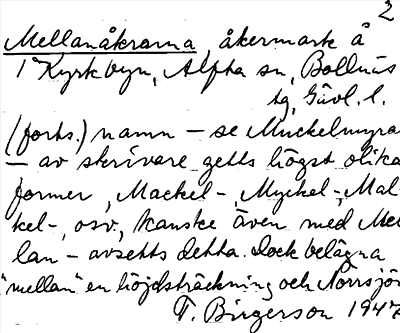 2
Mellanåkrarna, åkermark å
1 Kyrkbyn, Alfta sn, Bollnäs
tg, Gävl. l.
(forts.) namn – se Muckelmyra
– av skrivare getts högst olika
former, Mackel-, Myckel-, Mal-
kel-, osv, kanske även med Mel
lan – avsetts detta. Dock belägna
"mellan" en höjdsträckning och Norrsjön
T. Birgerson 1947